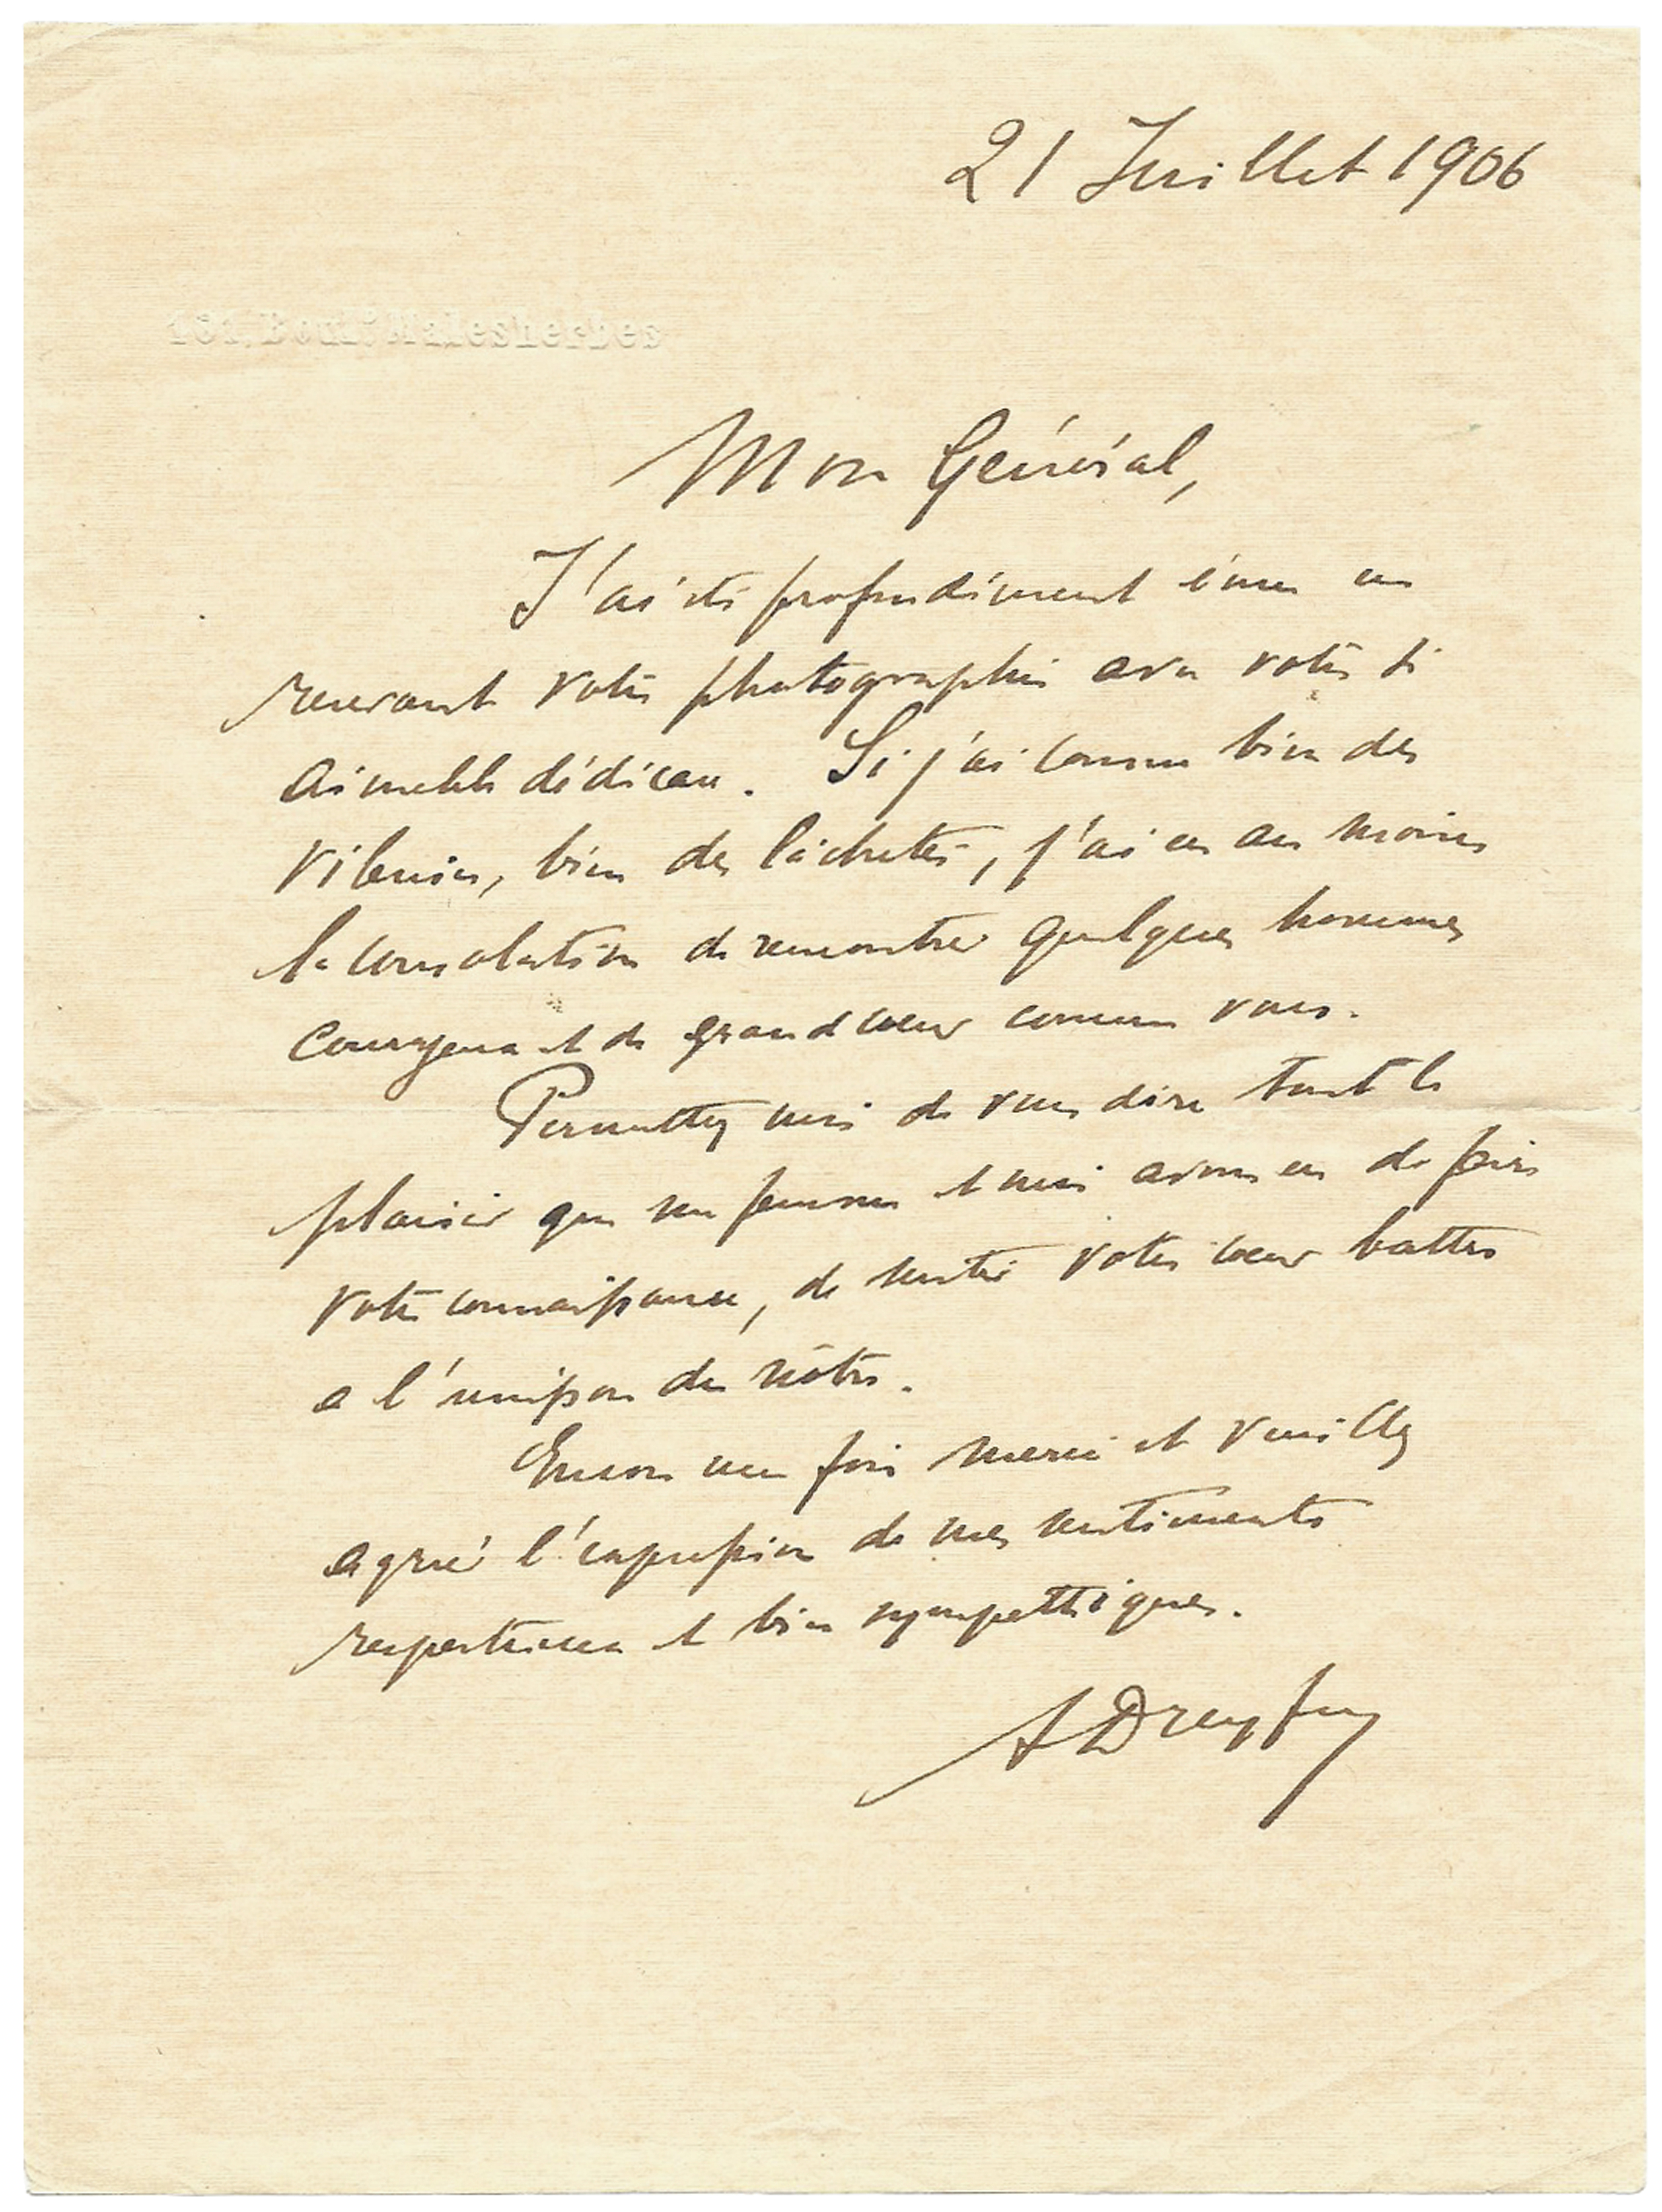 21 Juillet 1906
Boul.d Malesherbes
Mon Général,
J'ai été profondément ému en
recevant votre photographie avec votre si
aimable dédicace. Si j'ai connu bien des
vilenies, bien des lâchetés, j'ai eu au moins
la consolation de rencontrer quelques hommes
courageux et de grand cœur comme vous.
Permettez moi de vous dire tout le
plaisir que ma femme et moi avons eu de faire
votre connaissance, de sentir votre cœur battre
a l'unisson du nôtre.
Encore une fois merci et veuillez
agréer l'expression de mes sentiments
respectueux et bien sympathiques.
A Dreyfus